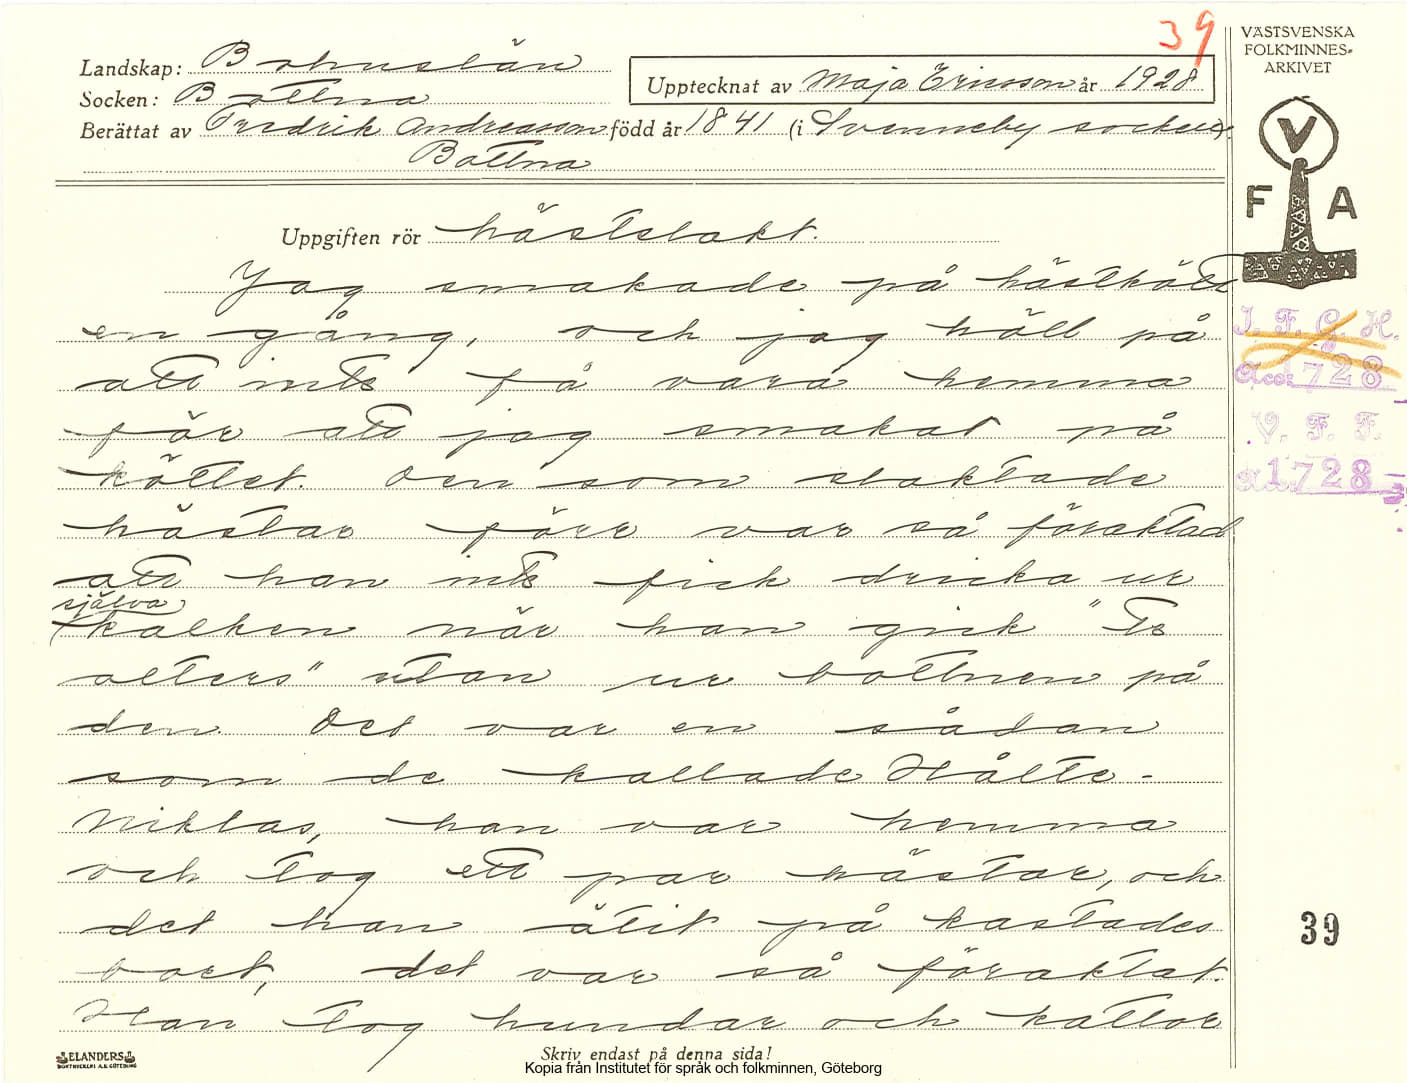 39
VÄSTSVENSKA
FOLKMINNES-
ARKIVET
Landskap: Bohuslän
Upptecknat av Maja Ericsson år 1928
Socken: Bottna
Berättat av Fredrik Andreasson född år 1841 (i Svenneby socken).
Bottna
V
F A
Uppgiften rör hästslakt.
Jag smakade på hästkött
en gång, och jag höll på
att inte få vara hemma
för att jag smakat på
köttet. Den som slaktade
hästar förr var så föraktad
att han inte fick dricka ur
själva
kalken när han gick "te
alters" utan ur bottnen på
den. Det var en sådan
som de kallade Hålte-
Niklas, han var hemma
och tog ett par hästar, och
det han ätit på kastades
bort, det var så föraktat.
Han tog hundar och kattor
I. F. G. H.
Acc: 728
V. F. F.
1728
39
ELANDERS
BOKTRYCKERI A.B. GÖTEBORG
Skriv endast på denna sida!
Kopia från Institutet för språk och folkminnen, Göteborg